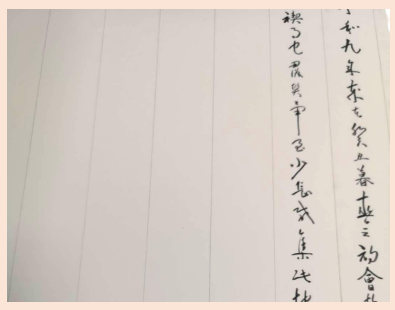 和九年歲在癸丑暮春之初會
禊事也羣賢畢至少長咸集此地